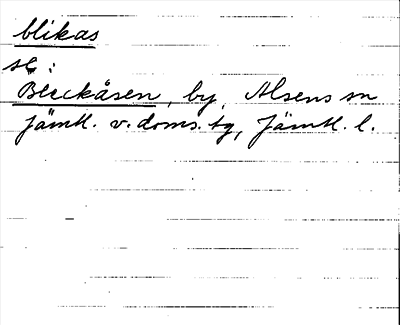 blikas
se:
Bleckåsen, by, Alsens sn
Jämtl. v. doms. tg, Jämtl. l.